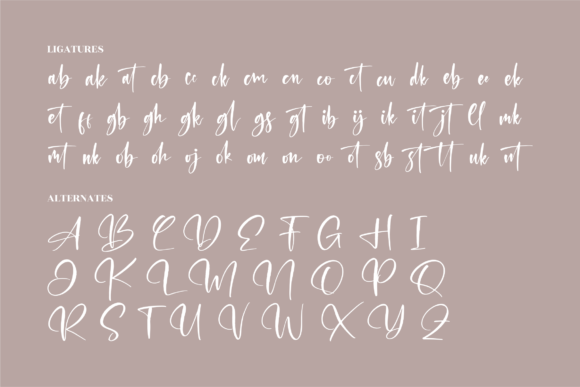 LIGATURES
ab ak at cb cc ck cm cn co ct cu dk eb ee ek
et ff gb gh gk gl gs gt ib ij ik it jt ll mk
mt nk ob oh oj ok om on oo ot sb st tt uk wt
ALTERNATES
A B C D E F G H I
J K L M N O P Q
R S T U V W X Y Z